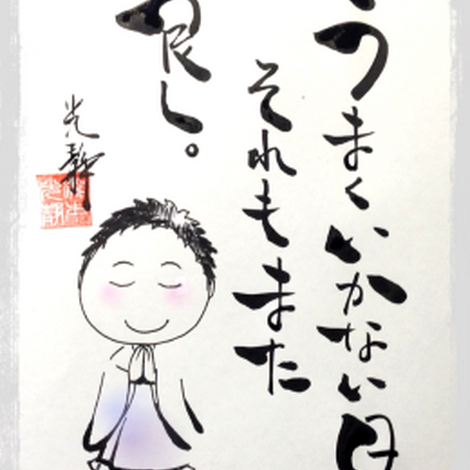 うまくいかない日
それもまた
良し。
光静